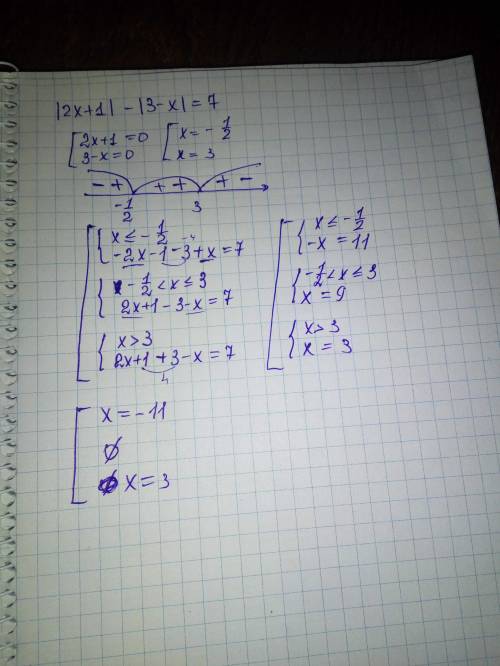 |2x+1| - |3-x| = 7
[ 2x+1 = 0 [ x = - 1/2
3-x = 0 x = 3
- + + + + -
-1/2 3
[ { x ≤ - 1/2
-2x-1-3+x = 7
-4
{ - 1/2 < x ≤ 3
2x+1-3-x = 7
{ x > 3
2x+1+3-x = 7
4
[ { x ≤ - 1/2
-x = 11
{ -1/2 < x ≤ 3
x = 9
{ x > 3
x = 3
[ x = -11
∅
x = 3